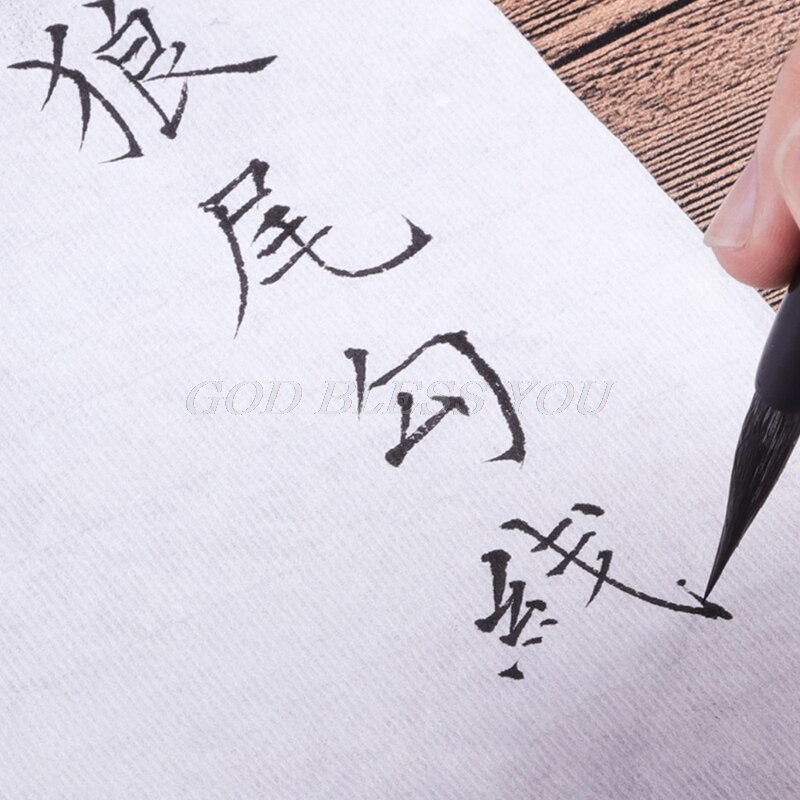 狼尾勾线
GOD BLESS YOU